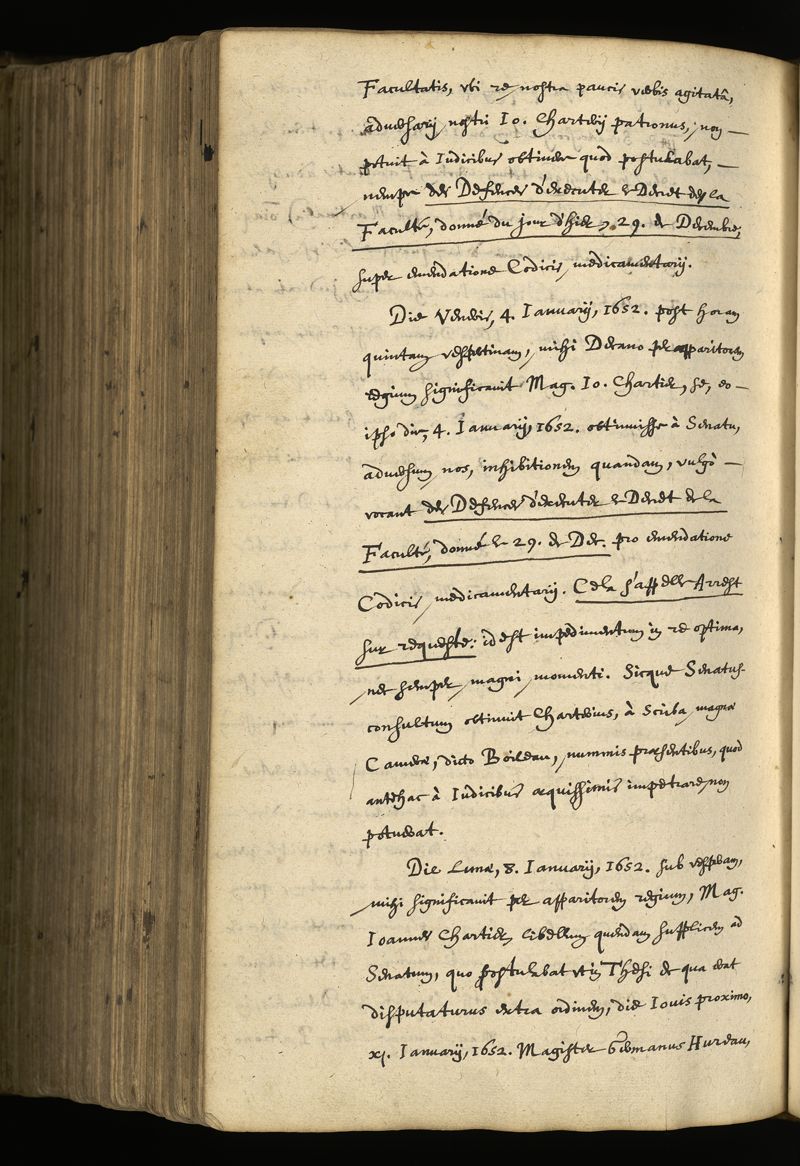 Facultatis, vbi re nostra paucis verbis agitatâ,
aduersarij nostri Io. Charterij patronus, non —
potuit à Iudicibus obtinere quod postulabat, —
nempe des Defences d'executer le Decret de la
Faculté, donné du jour d'hier 29. de Decembre,
super emendatione Codicis medicamentarij.
Die Veneris, 4. Ianuarij, 1652. post horam
quintam vespertinam, mihi Decano per apparitorem
regium significauit Mag. Io. Chartier, se, eo —
ipso die, 4. Ianuarij, 1652. obtinuisse à Senatu,
aduersum nos, inhibitionem quandam, vulgò —
vocant des Defences d'executer le Decret de la
Faculté, donné le 29. de Dec. pro emendatione
Codicis medicamentarij. Cela s'appelle Arrest
sur requeste: id est impedimentum in re optima,
nec semper magni momenti. Sicque Senatus-
consultum obtinuit Charterius, à Scriba magnæ
Cameræ, dicto Boileau, nummis præsentibus, quod
antehac à Iudicibus æquissimis impetrare non
potuerat.
Die Lunæ, 8. Ianuarij, 1652. sub vesperam,
mihi significauit per apparitorem regium, Mag.
Ioannes Chartier libellum quendam supplicem ad
Senatum, quo postulabat vt in Thesi de qua erat
disputaturus extra ordinem, die Iouis proximo,
xj. Ianuarij, 1652. Magister Germanus Hureau,